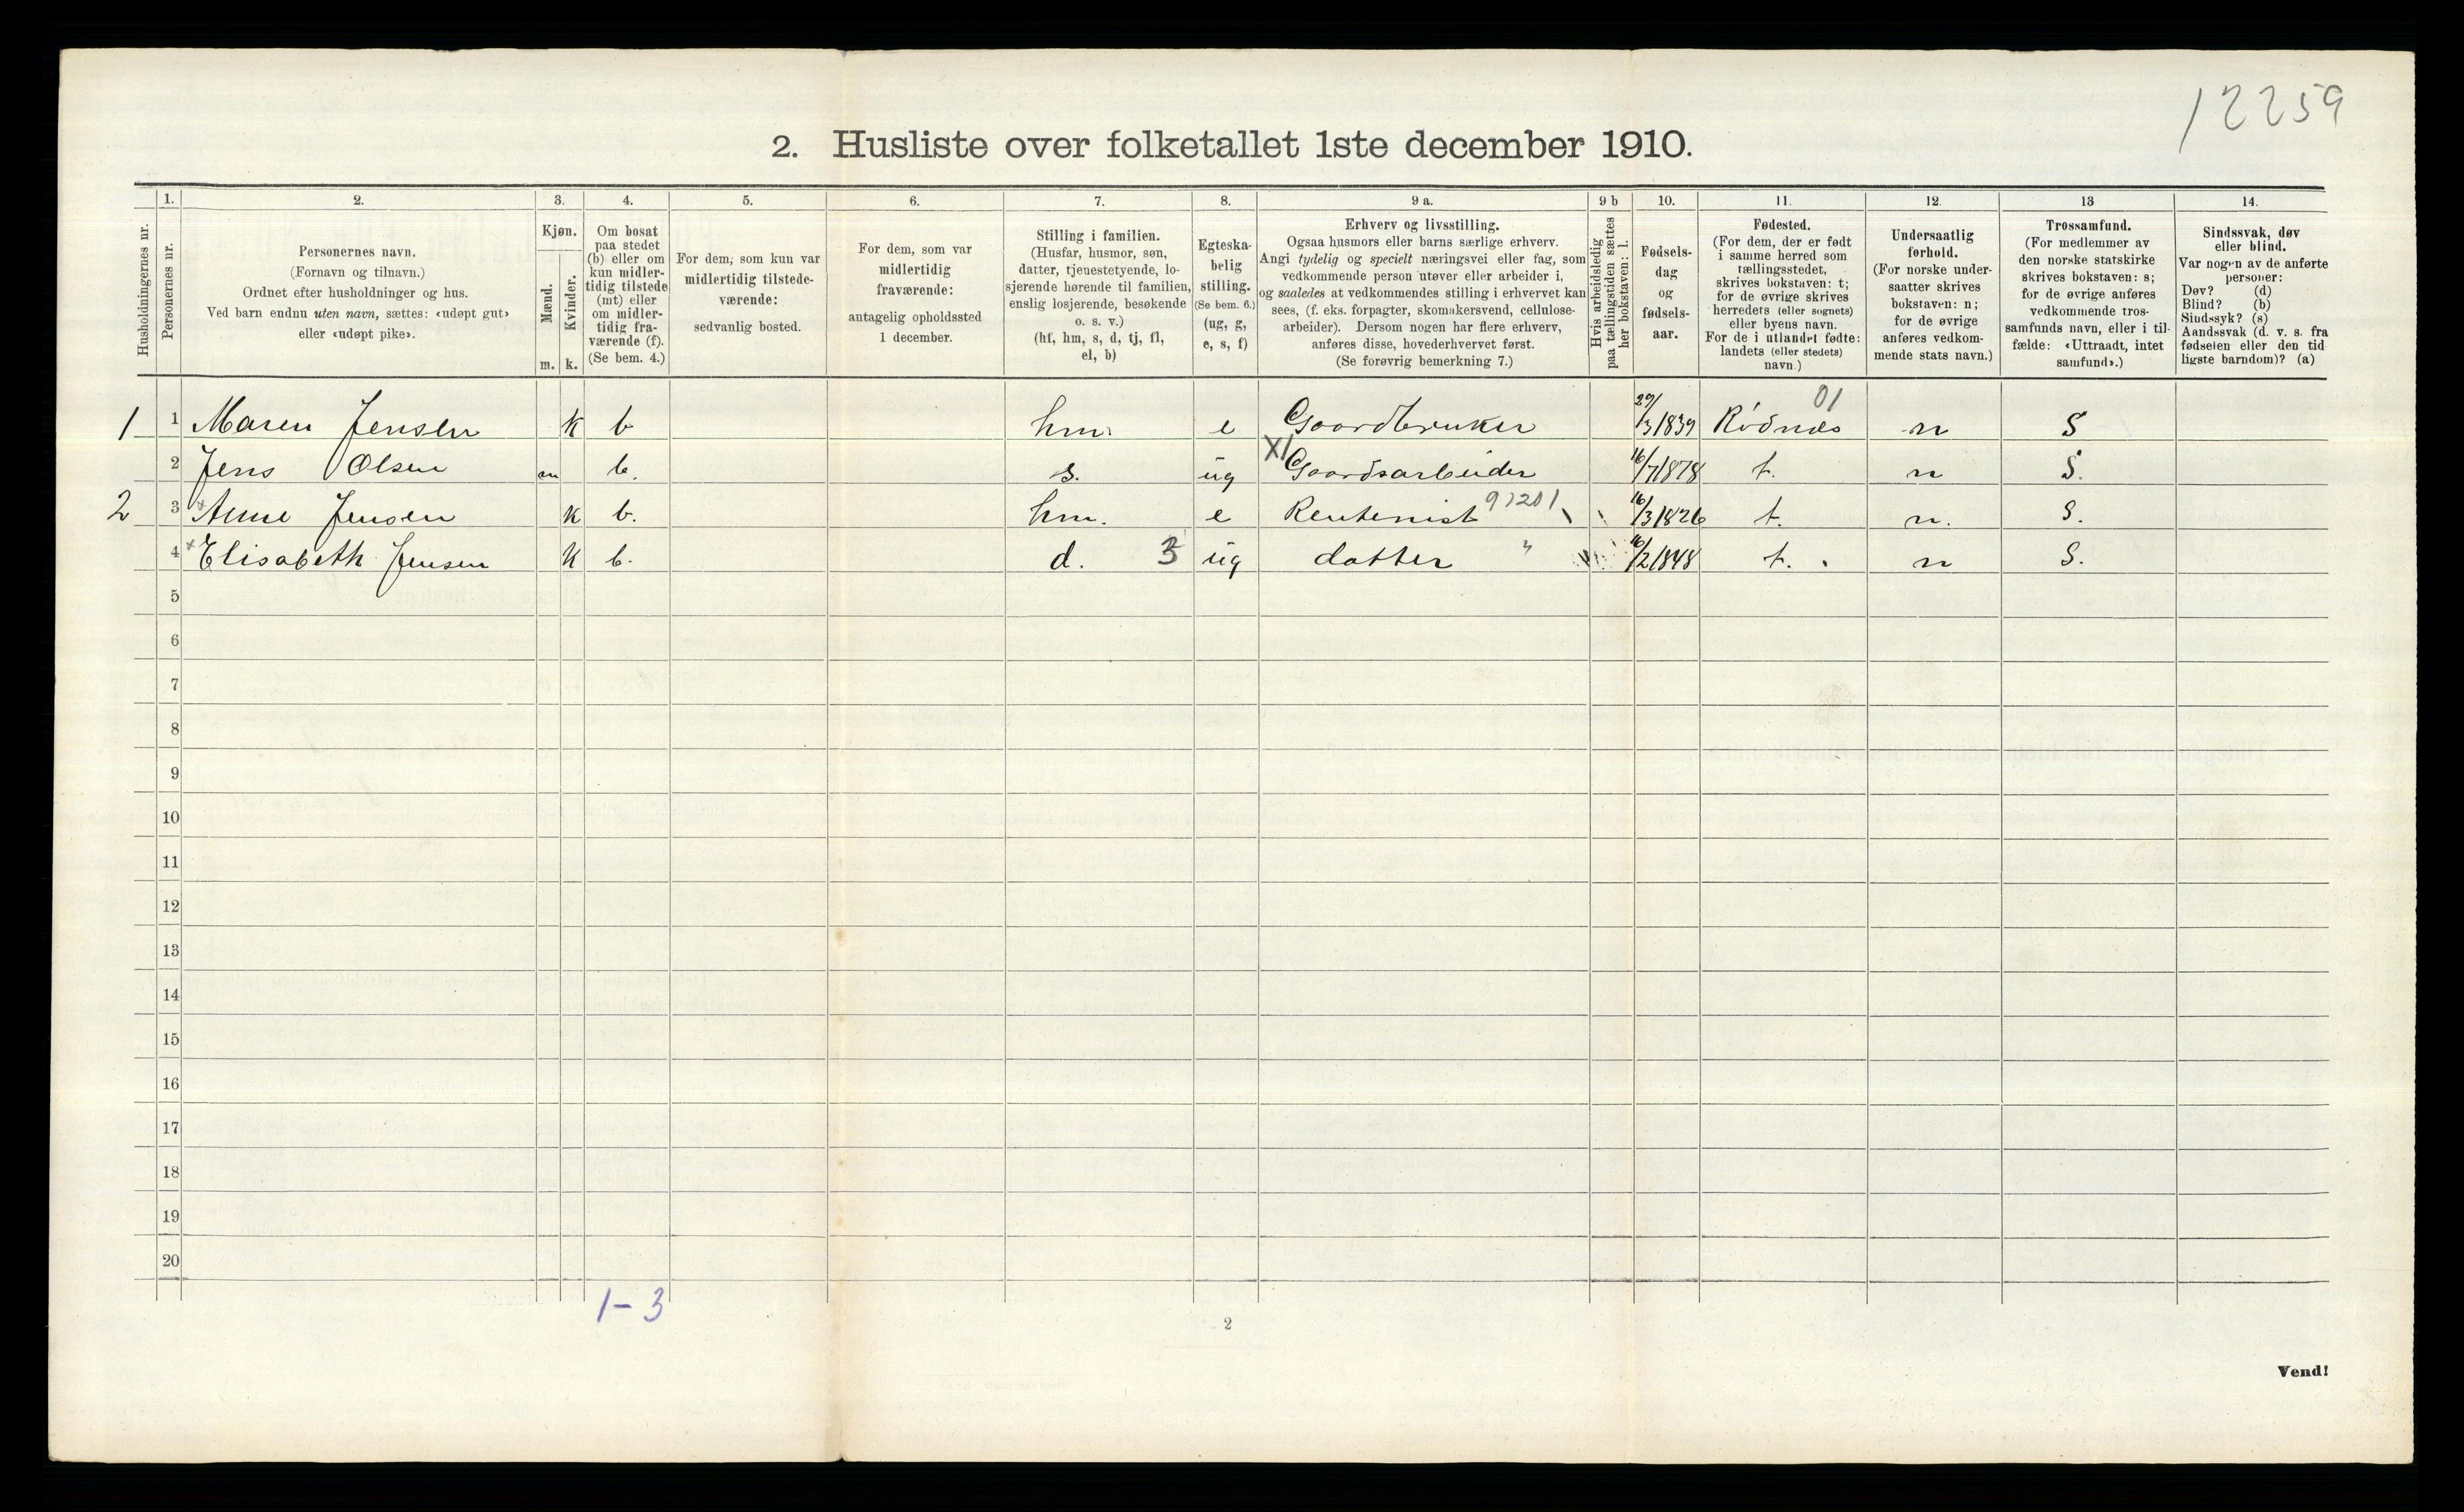 12259
2. Husliste over folketallet 1ste december 1910.
Husholdningernes nr.
1.
Personernes nr.
2.
Personernes navn.
(Fornavn og tilnavn.)
Ordnet efter husholdninger og hus.
Ved barn endnu uten navn, sættes: «udøpt gut»
eller «udøpt pike».
3.
Kjøn.
Mænd.
m.
Kvinder.
k.
4.
Om bosat
paa stedet
(b) eller om
kun midler-
tidig tilstede
(mt) eller
om midler-
tidig fra-
værende (f).
(Se bem. 4.)
5.
For dem, som kun var
midlertidig tilstede-
værende:
sedvanlig bosted.
6.
For dem, som var
midlertidig
fraværende:
antagelig opholdssted
1 december.
7.
Stilling i familien.
(Husfar, husmor, søn,
datter, tjenestetyende, lo-
sjerende hørende til familien,
enslig losjerende, besøkende
o. s. v.)
(hf, hm, s, d, tj, fl,
el, b)
8.
Egteska-
belig
stilling.
(Se bem. 6.)
(ug, g,
e, s, f)
9 a.
Erhverv og livsstilling.
Ogsaa husmors eller barns særlige erhverv.
Angi tydelig og specielt næringsvei eller fag, som
vedkommende person utøver eller arbeider i,
og saaledes at vedkommendes stilling i erhvervet kan
sees, (f. eks. forpagter, skomakersvend, cellulose-
arbeider). Dersom nogen har flere erhverv,
anføres disse, hovederhvervet først.
(Se forøvrig bemerkning 7.)
9 b
Hvis arbeidsledig
paa tællingstiden sættes
her bokstaven: l.
10.
Fødsels-
dag
og
fødsels-
aar.
11.
Fødested.
(For dem, der er født
i samme herred som
tællingsstedet,
skrives bokstaven: t;
for de øvrige skrives
herredets (eller sognets)
eller byens navn.
For de i utlandet fødte:
landets (eller stedets)
navn.)
12.
Undersaatlig
forhold.
(For norske under-
saatter skrives
bokstaven: n;
for de øvrige
anføres vedkom-
mende stats navn.)
13
Trossamfund.
(For medlemmer av
den norske statskirke
skrives bokstaven: s;
for de øvrige anføres
vedkommende tros-
samfunds navn, eller i til-
fælde: «Uttraadt, intet
samfund».)
14.
Sindssvak, døv
eller blind.
Var nogen av de anførte
personer:
Døv? (d)
Blind? (b)
Sindssyk? (s)
Aandssvak (d. v. s. fra
fødselen eller den tid
ligste barndom)? (a)
1 1 Maren Jensen K b hm. e Gaardbruker 29/3 1839 Rødnes 01 n S
2 Jens Olsen m b. s. ug X1 Gaardsarbeider 16/7 1878 t. n S.
2 3 Anne Jensen K b. hm. e Rentenist 16/3 1826 t. n. S.
4 Elisabeth Jensen K b. d. 3 ug datter " 16/2 1848 t. n S.
5
6
7
8
9
10
11
12
13
14
15
16
17
18
19
20
1-3
2
Vend!